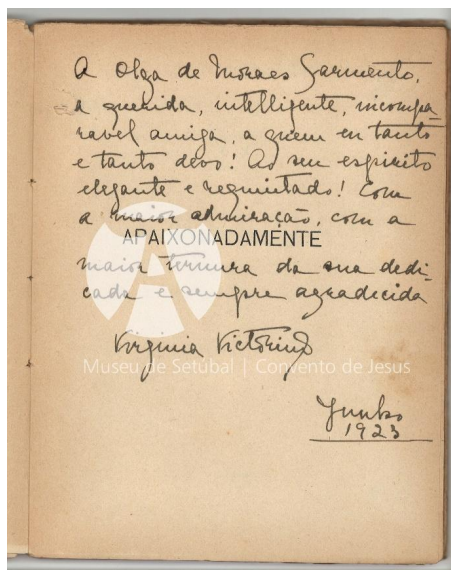 A Olga de Moraes Sarmento,
a querida, intelligente, incompa-
ravel amiga, a quem eu tanto
e tanto devo! Ao seu espirito
elegante e requintado! Com
a maior admiração, com a
APAIXONADAMENTE
maior ternura da sua dedi-
cada e sempre agradecida
Virginia Victorino
Museu de Setúbal | Convento de Jesus
Junho
1923